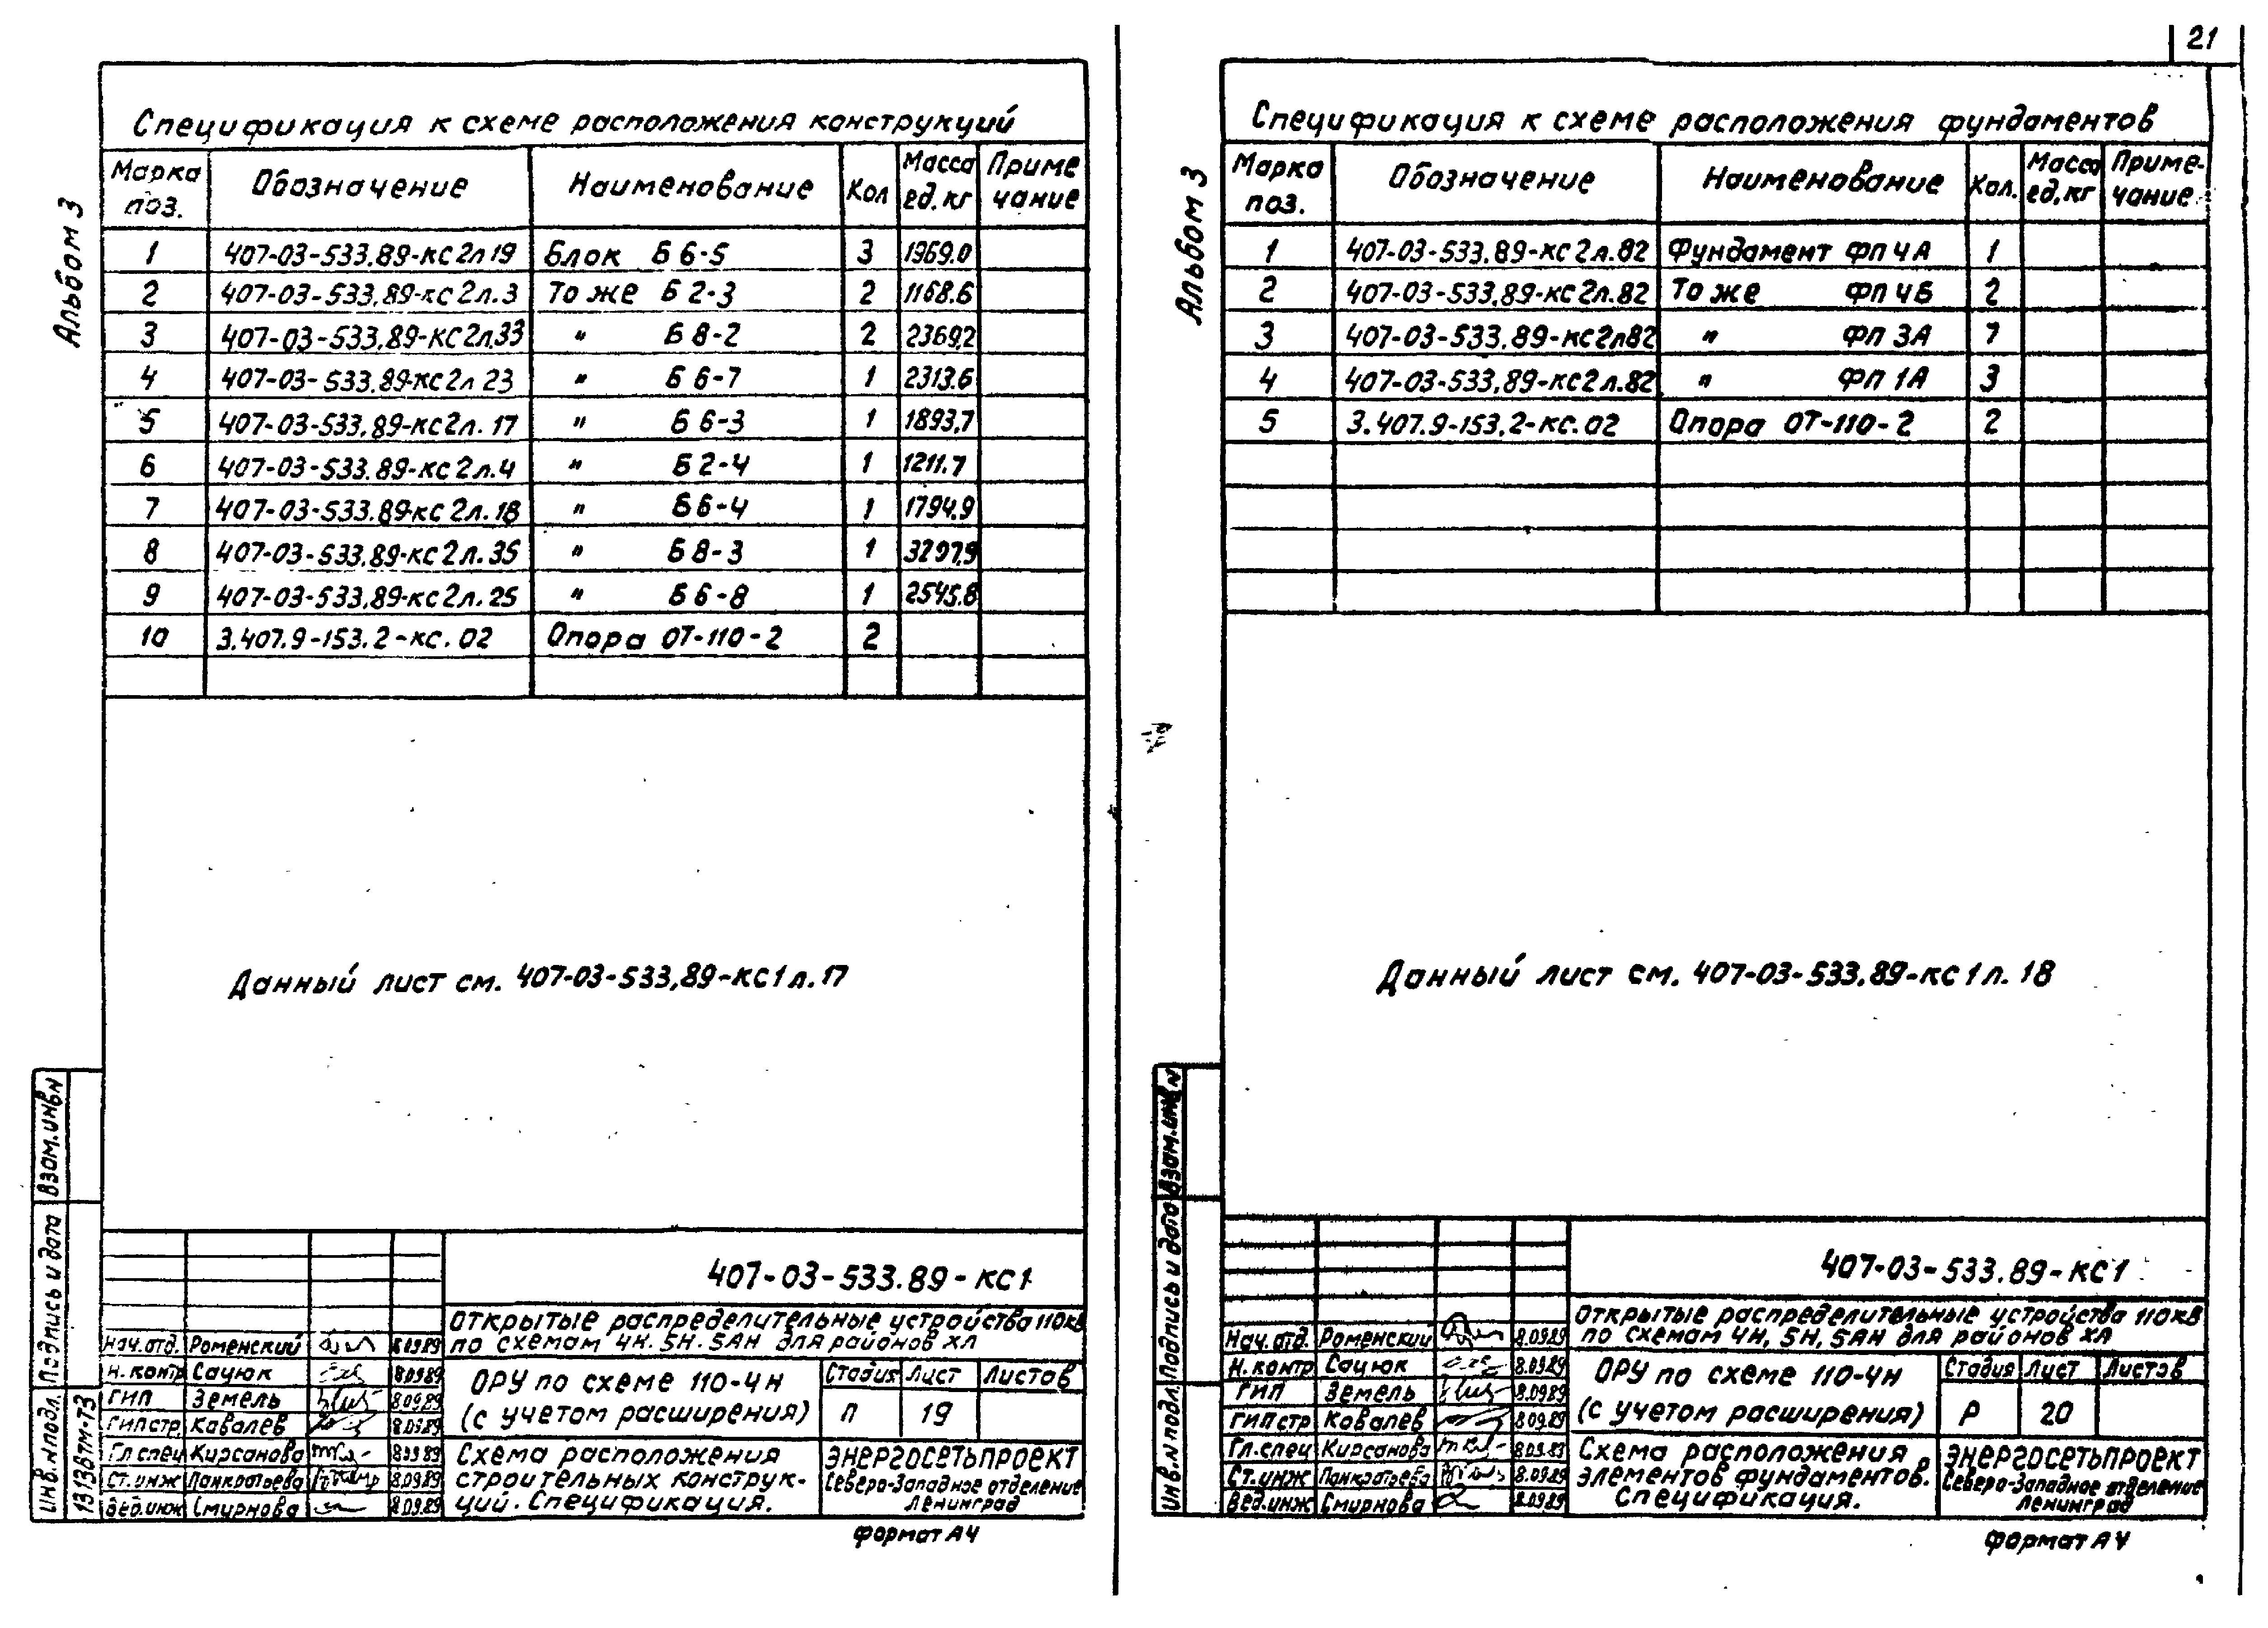 21
Альбом 3
Спецификация к схеме расположения конструкций
Марка поз. Обозначение Наименование Кол Масса ед.кг Примечание
1 407-03-533.89-КС2л19 Блок Б6-5 3 1969.0
2 407-03-533.89-КС2л.3 То же Б2-3 2 1168.6
3 407-03-533.89-КС2л.33 " Б8-2 2 2369,2
4 407-03-533.89-КС2л 23 " Б6-7 1 2313.6
5 407-03-533.89-КС2л.17 " Б6-3 1 1893,7
6 407-03-533.89-КС2л.4 " Б2-4 1 1211.7
7 407-03-533.89-КС2л.18 " Б6-4 1 1794.9
8 407-03-533.89-КС2л.35 " Б8-3 1 3297,9
9 407-03-533.89-КС2л.25 " Б6-8 1 2545.8
10 3.407.9-153.2-КС.02 Опора ОТ-110-2 2
Данный лист см. 407-03-533,89-КС1л.17
Взам.инв.N
Подпись и дата
Инв.N подл.
13138тм-т3
407-03-533.89-КС1
Открытые распределительные устройства 110кВ
по схемам 4Н. 5Н. 5АН для районов ХЛ
Нач.отд. Роменский 8.09.89
Н.контр Сацюк 8.09.89
ГИП Земель 8.09.89
ГИПстр. Ковалев 8.09.89
Гл.спец Кирсанова 8.09.89
Ст.инж Панкратьева 8.09.89
Вед.инж Смирнова 8.09.89
ОРУ по схеме 110-4Н
(с учетом расширения)
Стадия Лист Листов
П 19
Схема расположения
строительных конструк-
ций. Спецификация.
ЭНЕРГОСЕТЬПРОЕКТ
Северо-Западное отделение
Ленинград
Формат А4
Альбом 3
Спецификация к схеме расположения фундаментов
Марка поз. Обозначение Наименование Кол. Масса ед,кг Приме-чание
1 407-03-533.89-КС2л.82 Фундамент ФП4А 1
2 407-03-533.89-КС2л.82 То же ФП4Б 2
3 407-03-533.89-КС2л82 " ФП3А 7
4 407-03-533.89-КС2л.82 " ФП1А 3
5 3.407.9-153.2-КС.02 Опора ОТ-110-2 2
Данный лист см. 407-03-533.89-КС1л.18
Взам.инв.N
Подпись и дата
Инв.N подл.
407-03-533.89-КС1
Открытые распределительные устройства 110кВ
по схемам 4Н, 5Н, 5АН для районов ХЛ
Нач.отд. Роменский 8.09.89
Н.контр Сацюк 8.09.89
ГИП Земель 8.09.89
ГИПстр Ковалев 8.09.89
Гл.спец Кирсанова 8.09.89
Ст.инж Панкратьева 8.09.89
Вед.инж Смирнова 8.09.89
ОРУ по схеме 110-4Н
(с учетом расширения)
Стадия Лист Листов
Р 20
Схема расположения
элементов фундаментов.
Спецификация.
ЭНЕРГОСЕТЬПРОЕКТ
Северо-Западное отделение
Ленинград
Формат А4